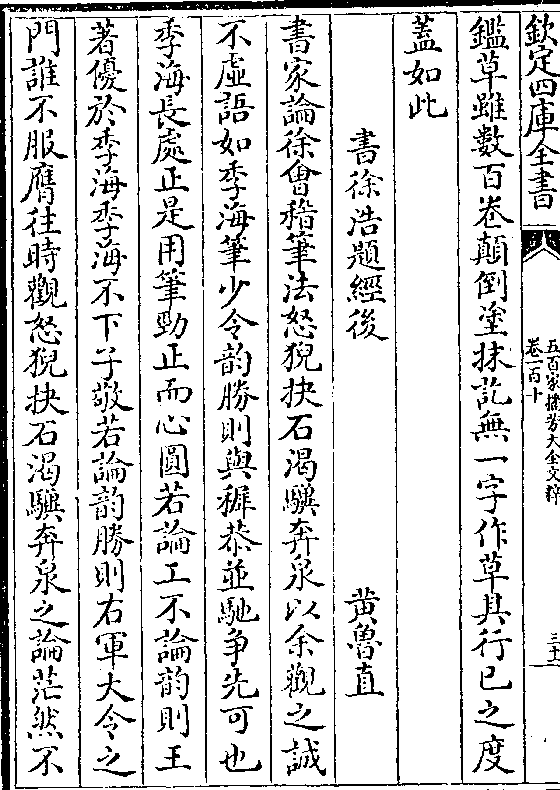 欽定四庫全書
五百家播芳大全文粹
卷一百十
三十一
鑑草雖數百卷顛倒塗抹訖無一字作草其行已之度
蓋如此
書徐浩題經後
黄魯直
書家論徐會稽筆法怒猊抉石渴驥奔泉以余觀之誠
不虛語如季海筆少令韵勝則與穉恭並馳争先可也
季海長處正是用筆勁正而心圓若論工不論韵則王
著優於季海季海不下子敬若論韵勝則右軍大令之
門誰不服膺往時觀怒猊抉石渴驥奔泉之論茫然不